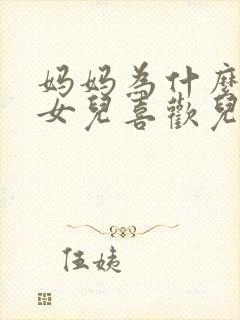 妈妈為什麼
女兒喜歡兒
伍姨